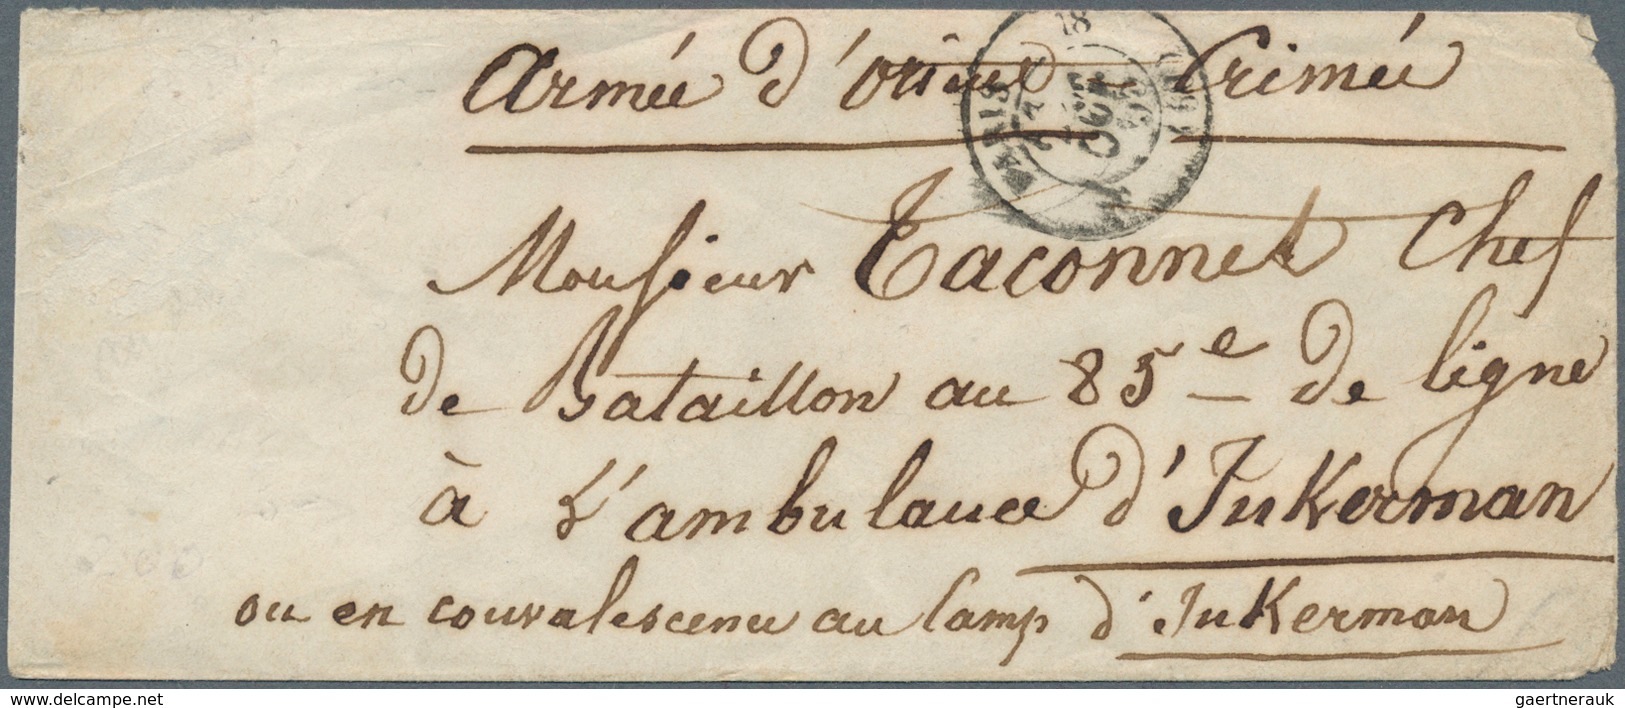 Armée d'orient Crimée
PARIS
OCT.
55
(60)
Monsieur Taconnet Chef
de Bataillon au 85e de ligne
à L'ambulance d'Inkerman
ou en convalescence au Camp d'Inkerman
www.delcampe.net
gaertnerauk